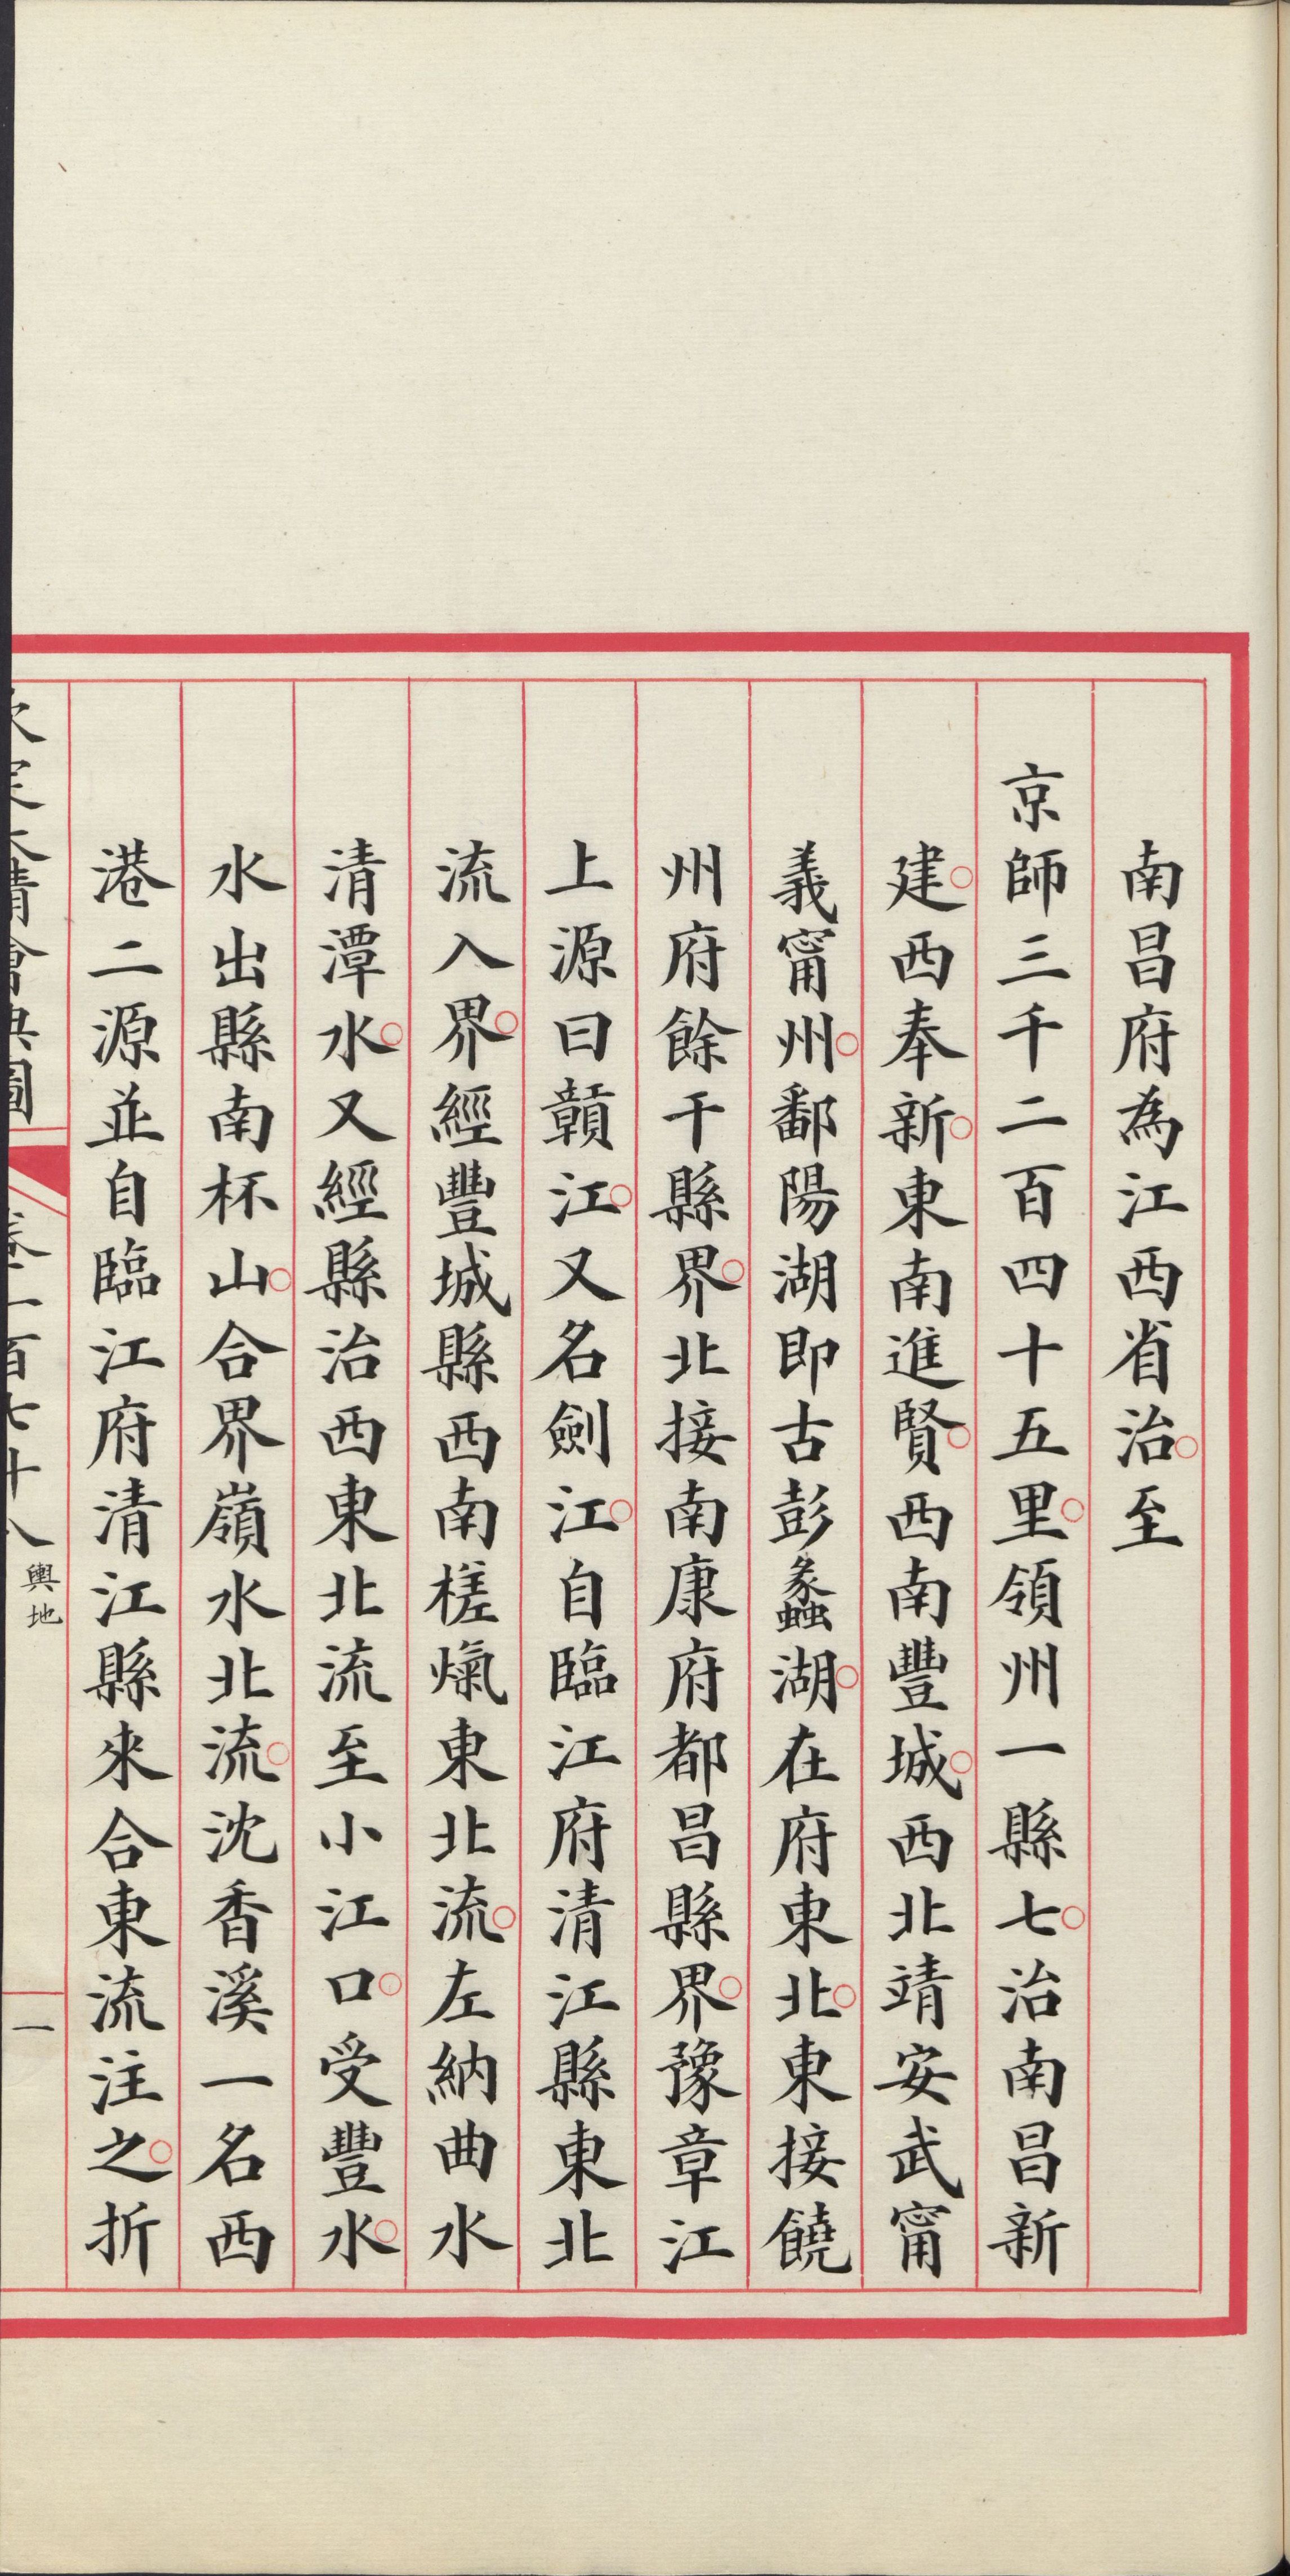 南昌府為江西省治。至
京師三千二百四十五里。領州一縣七。治南昌新
建。西奉新。東南進賢。西南豐城。西北靖安武甯
義甯州。鄱陽湖即古彭蠡湖。在府東北。東接饒
州府餘干縣界。北接南康府都昌縣界。豫章江
上源曰贛江。又名劍江。自臨江府清江縣東北
流入界。經豐城縣西南槎𤌴東北流。左納曲水
清潭水。又經縣治西東北流至小江口。受豐水。
水出縣南杯山。合界嶺水北流。沈香溪一名西
港二源並自臨江府清江縣來合東流注之。折
清會典圖
百七十八
輿地
一